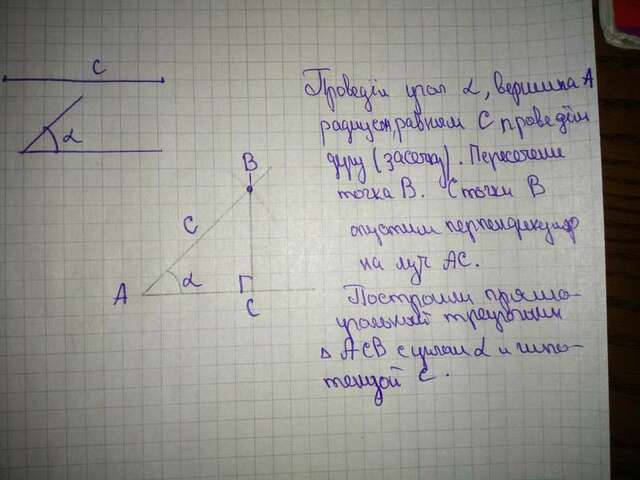 c
α
B
c
α
A
C
Проведём угол α, вершина A
радиусом, равным C проведём
дугу (засечку). Пересечение
точка B. С точки B
опустим перпендикуляр
на луч AC.
Построили прямо-
угольный треугольник
Δ ACB с углом α и гипо-
тенузой C.